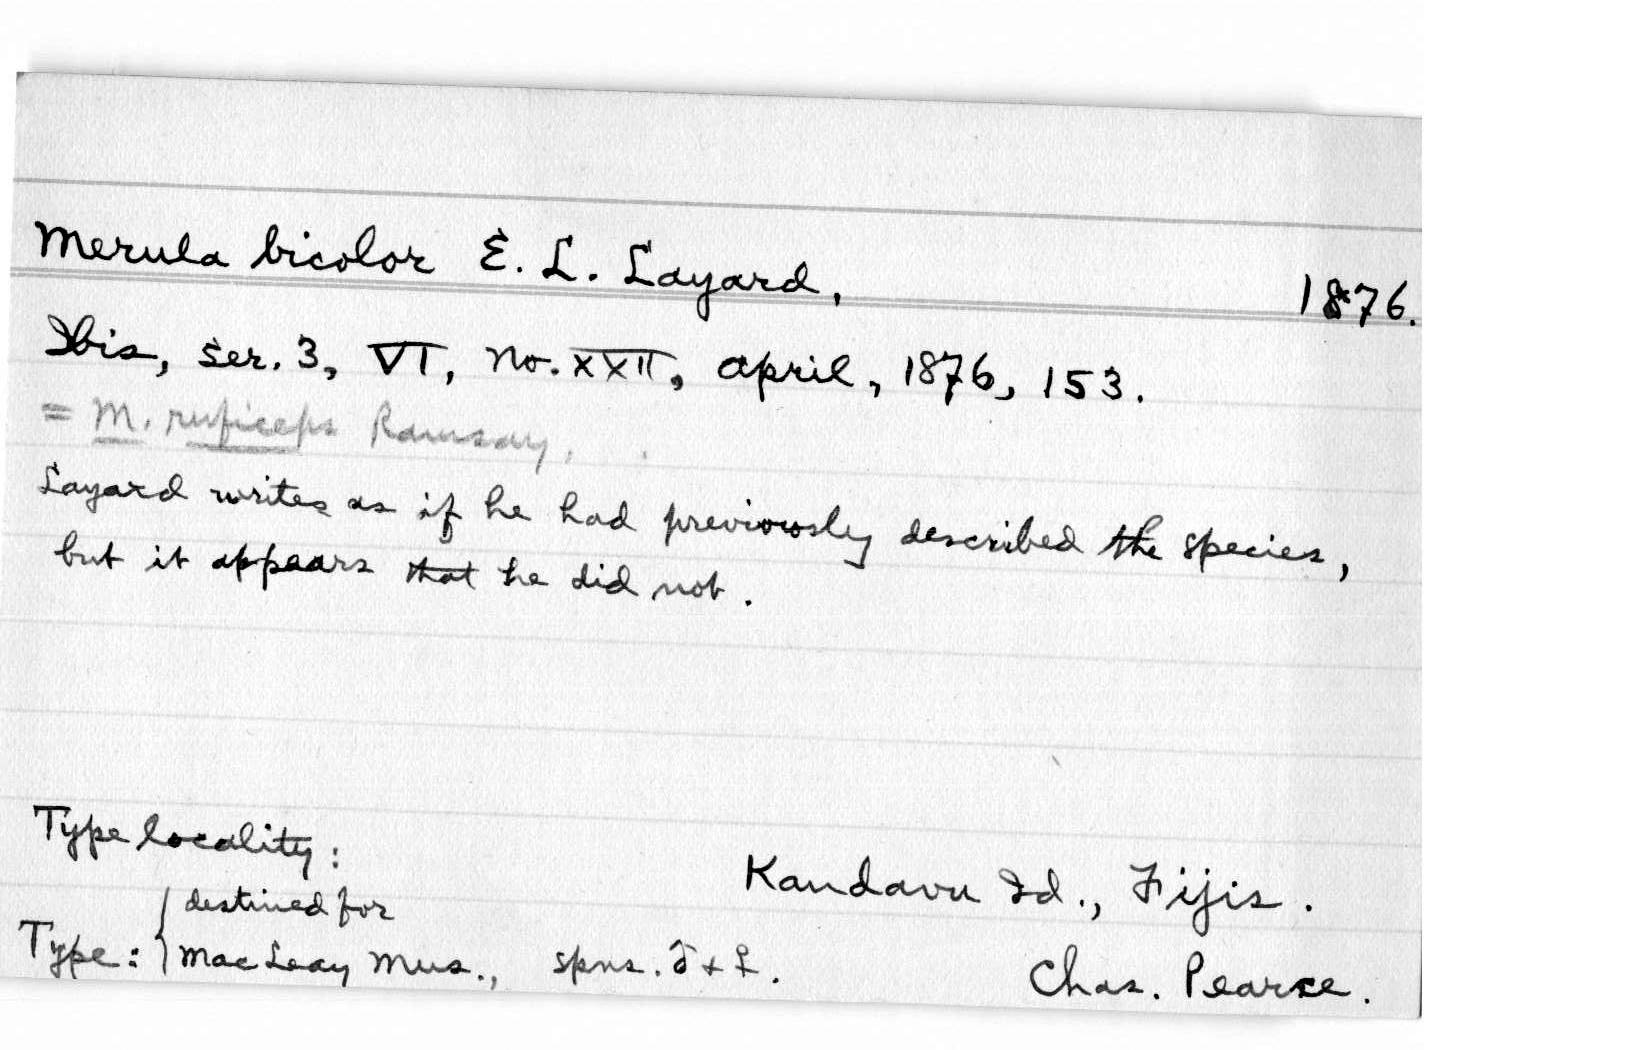 Merula bicolor E. L. Layard, 1876.
Ibis, ser. 3, VI, No. XXII, April, 1876, 153.
= M. ruficeps Ramsay.
Layard writes as if he had previously described the species,
but it appears that he did not.
Type locality:
Kandavu Id., Fijis.
destined for
Type: { MacLeay Mus., spms. ♂ + ♀. Chas. Pearce.